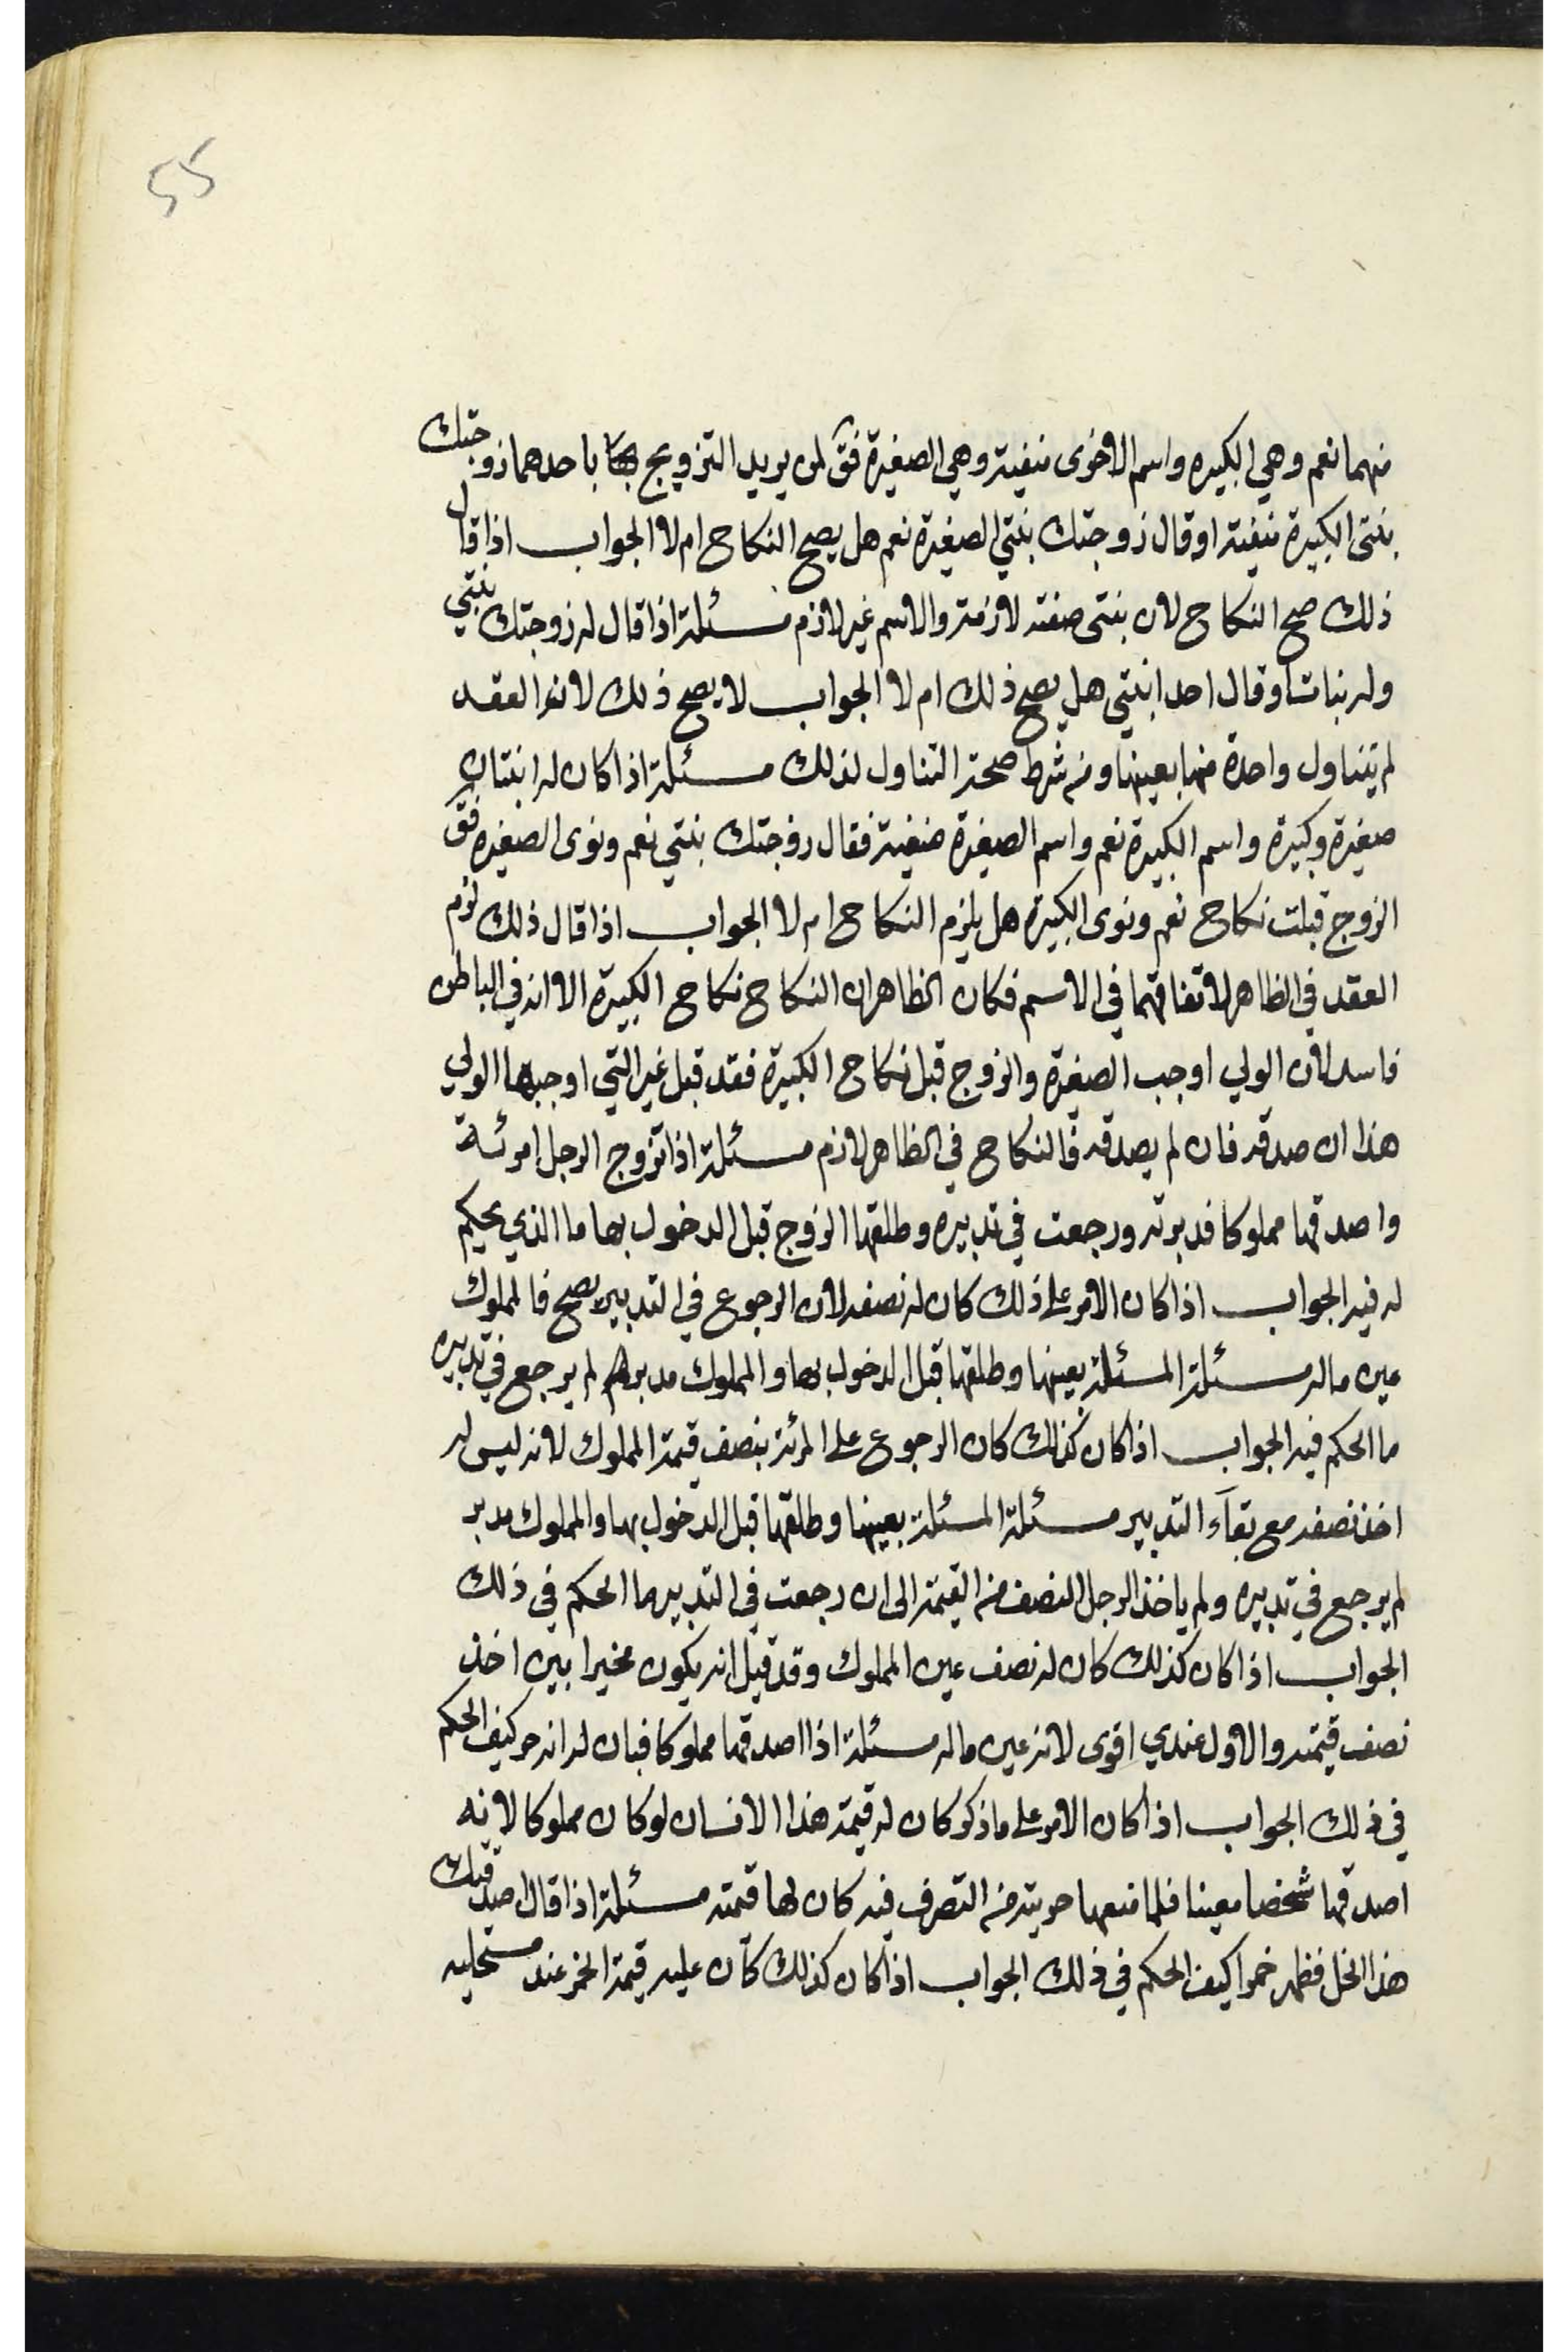 55
منهما نعم وهي الكبيره واسم الاخرى منيفية وهي الصغيرة فق لمن يريد التزويج باحدهما زوجتك
بنتى الكبيرة منيفية او قال زوجتك بنتي الصغيرة نعم هل يصح النكاح ام لا الجواب اذا قال
ذلك صح النكاح لان بنتى صفته لازمة والاسم غير لازم مسئلة اذا قال له زوجتك بنتي
وله بنات او قال احد ابنتي هل يصح ذلك ام لا الجواب لا يصح ذلك لانه العقد
لم يتناول واحدة منها بعينها ومن شرط صحة التناول لذلك مسئلة اذا كان له ابنتان
صغيرة وكبيرة واسم الكبيرة نعم واسم الصغيرة منيفية فقال زوجتك بنتي نعم ونوى الصغيره فق
الزوج قبلت نكاح نعم ونوى الكبيرة هل يلزم النكاح ام لا الجواب اذا قال ذلك لزم
العقد في الظاهر لاتفاقهما في الاسم فكان الظاهر ان النكاح نكاح الكبيرة الا انه في الباطن
فاسد لان الولي اوجب الصغيرة والزوج قبل نكاح الكبيرة فقد قبل غير التي اوجبها الولي
هذا ان صدقه فان لم يصدقه فالنكاح في الظاهر لازم مسئلة اذا تزوج الرجل امرئة
واصدقها مملوكا فدبرته ورجعت في تدبيره وطلقها الزوج قبل الدخول بها ما الذي يحكم
له فيه الجواب اذا كان الامر على ذلك كان له نصفه لان الرجوع في التدبير يصح فالمملوك
عين ماله مسئلة المسئلة بعينها وطلقها قبل الدخول بها والمملوك مدبر لم يرجع في تدبيره
ما الحكم فيه الجواب اذا كان كذلك كان الرجوع على المرئة بنصف قيمة المملوك لانه ليس له
اخذ نصفه مع بقآء التدبير مسئلة المسئلة بعينها وطلقها قبل الدخول بها والمملوك مدبر
لم يرجع في تدبيره ولم ياخذ الرجل النصف من القيمة الى ان رجعت في التدبير ما الحكم في ذلك
الجواب اذا كان كذلك كان له نصف عين المملوك وقد قيل انه يكون مخيرا بين اخذ
نصف قيمته والاول عندي اقوى لانه عين ماله مسئلة اذا اصدقها مملوكا فبان له انه حر كيف الحكم
في ذلك الجواب اذا كان الامر على ما ذكر كان له قيمة هذا الانسان لو كان مملوكا لانه
اصدقها شخصا معينا فلما منعها حريته من التصرف فيه كان لها قيمته مسئلة اذا قال اصدقتك
هذا الخل فظهر خمرا كيف الحكم في ذلك الجواب اذا كان كذلك كان عليه قيمة الخمر عند مستحليه